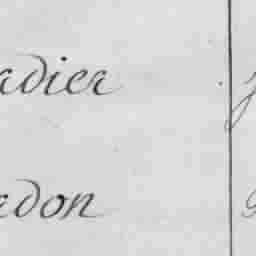 adier
rdon